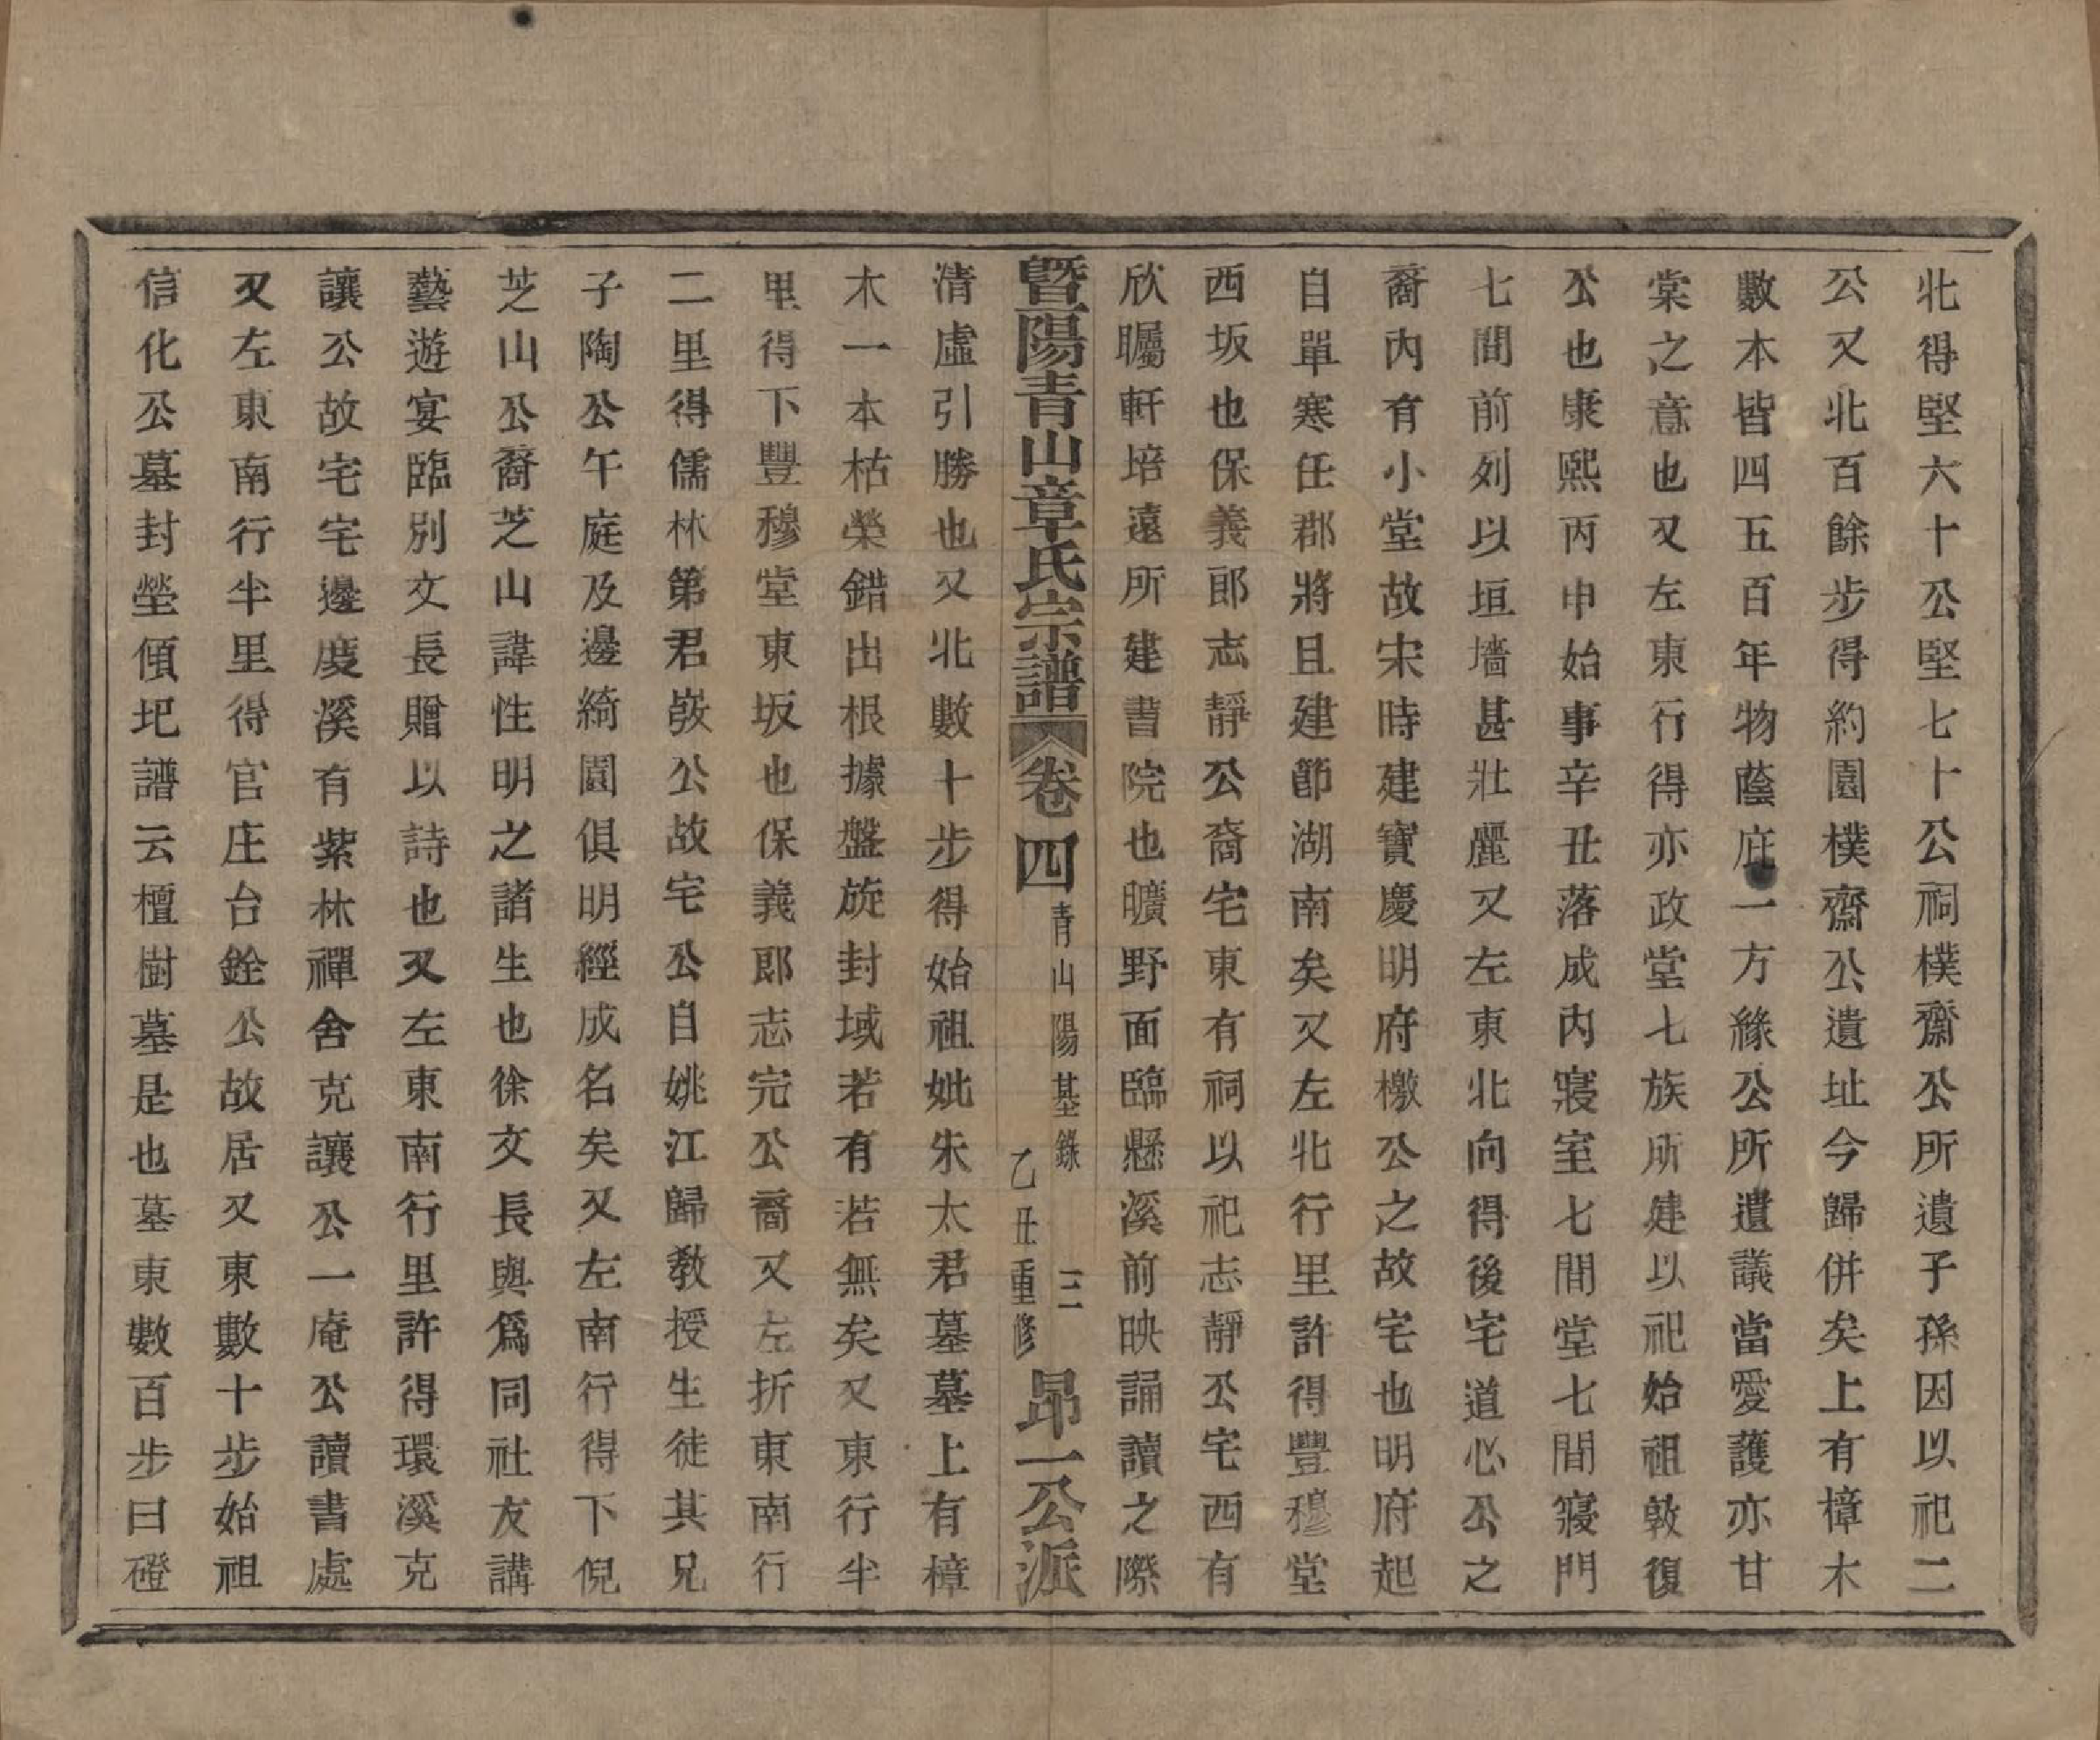 北得堅六十公堅七十公祠樸齋公所遺子孫因以祀二
公又北百餘步得約園樸齋公遺址今歸併矣上有樟木
數本皆四五百年物蔭庇一方緣公所遺議當愛護亦甘
棠之意也又左東行得亦政堂七族所建以祀始祖敦復
公也康熙丙申始事辛丑落成內寢室七間堂七間寢門
七間前列以垣墻甚壯麗又左東北向得後宅道心公之
裔內有小堂故宋時建寶慶明府檄公之故宅也明府起
自單寒任郡將且建節湖南矣又左北行里許得豐穆堂
西坂也保義郎志靜公裔宅東有祠以祀志靜公宅西有
欣矚軒培遠所建書院也曠野面臨懸溪前映誦讀之際
暨陽青山章氏宗譜 卷四 青山陽基錄 三 乙丑重修 昂一公派
清虛引勝也又北數十步得始祖妣朱太君墓墓上有樟
木一本枯榮錯出根據盤旋封域若有若無矣又東行半
里得下豐穆堂東坂也保義郎志完公裔又左折東南行
二里得儒林第君嶔公故宅公自姚江歸教授生徒其兄
子陶公午庭及邊綺園俱明經成名矣又左南行得下倪
芝山公裔芝山諱性明之諸生也徐文長與爲同社友講
藝遊宴臨別文長贈以詩也又左東南行里許得環溪克
讓公故宅宅邊度溪有紫林禪舍克讓公一庵公讀書處
又左東南行半里得官庄台銓公故居又東數十步始祖
信化公墓封塋傾圯譜云檀樹墓是也墓東數百步曰磴